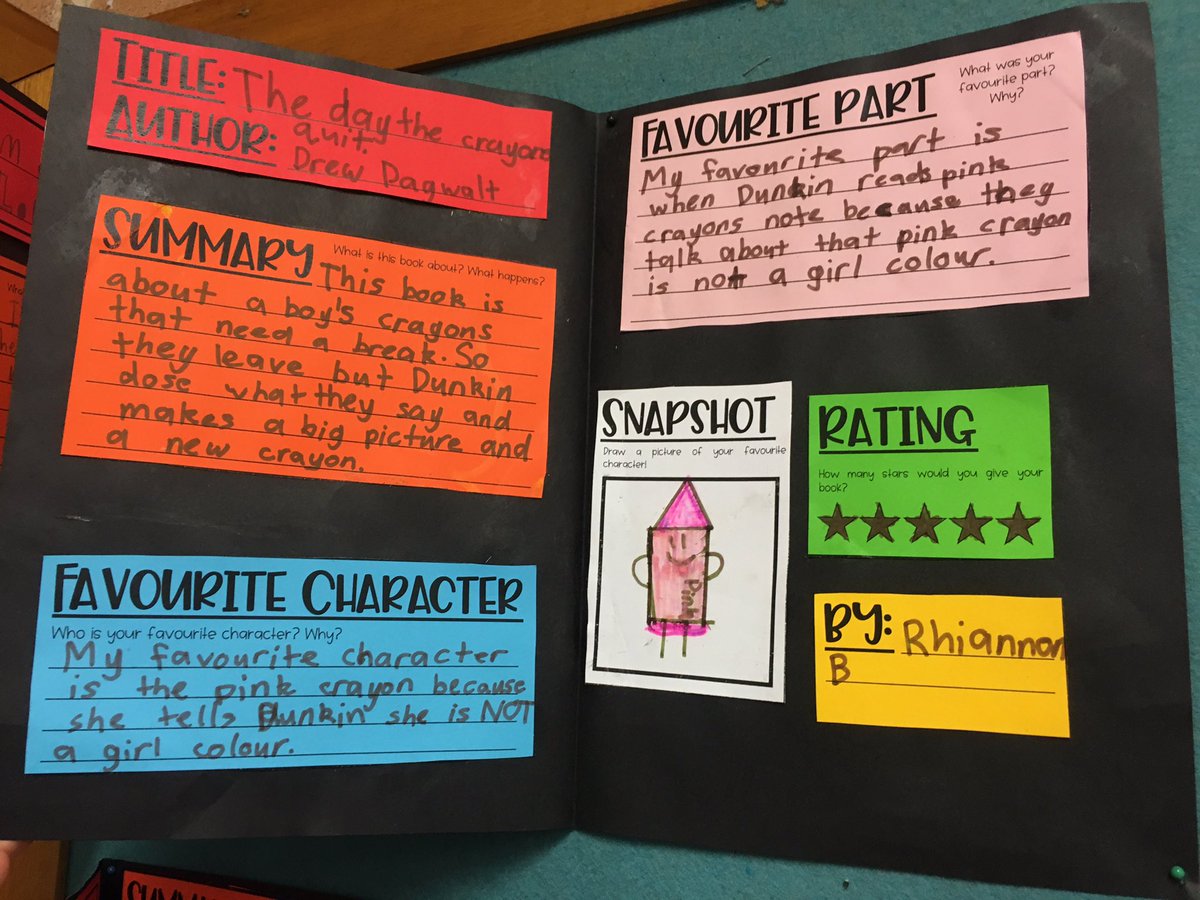 TITLE: The day the crayons
quit.
AUTHOR: Drew Dagwalt
SUMMARY What is this book about? What happens?
This book is
about a boy's crayons
that need a break. So
they leave but Dunkin
dose what they say and
makes a big picture and
a new crayon.
FAVOURITE CHARACTER
Who is your favourite character? Why?
My favourite character
is the pink crayon because
she tells Dunkin she is NOT
a girl colour.
FAVOURITE PART
What was your
favourite part?
Why?
My favourite part is
when Dunkin reads pink
crayons note because they
talk about that pink crayon
is not a girl colour.
SNAPSHOT
Draw a picture of your favourite
character!
Pink
RATING
How many stars would you give your
book?
BY: Rhiannon
B